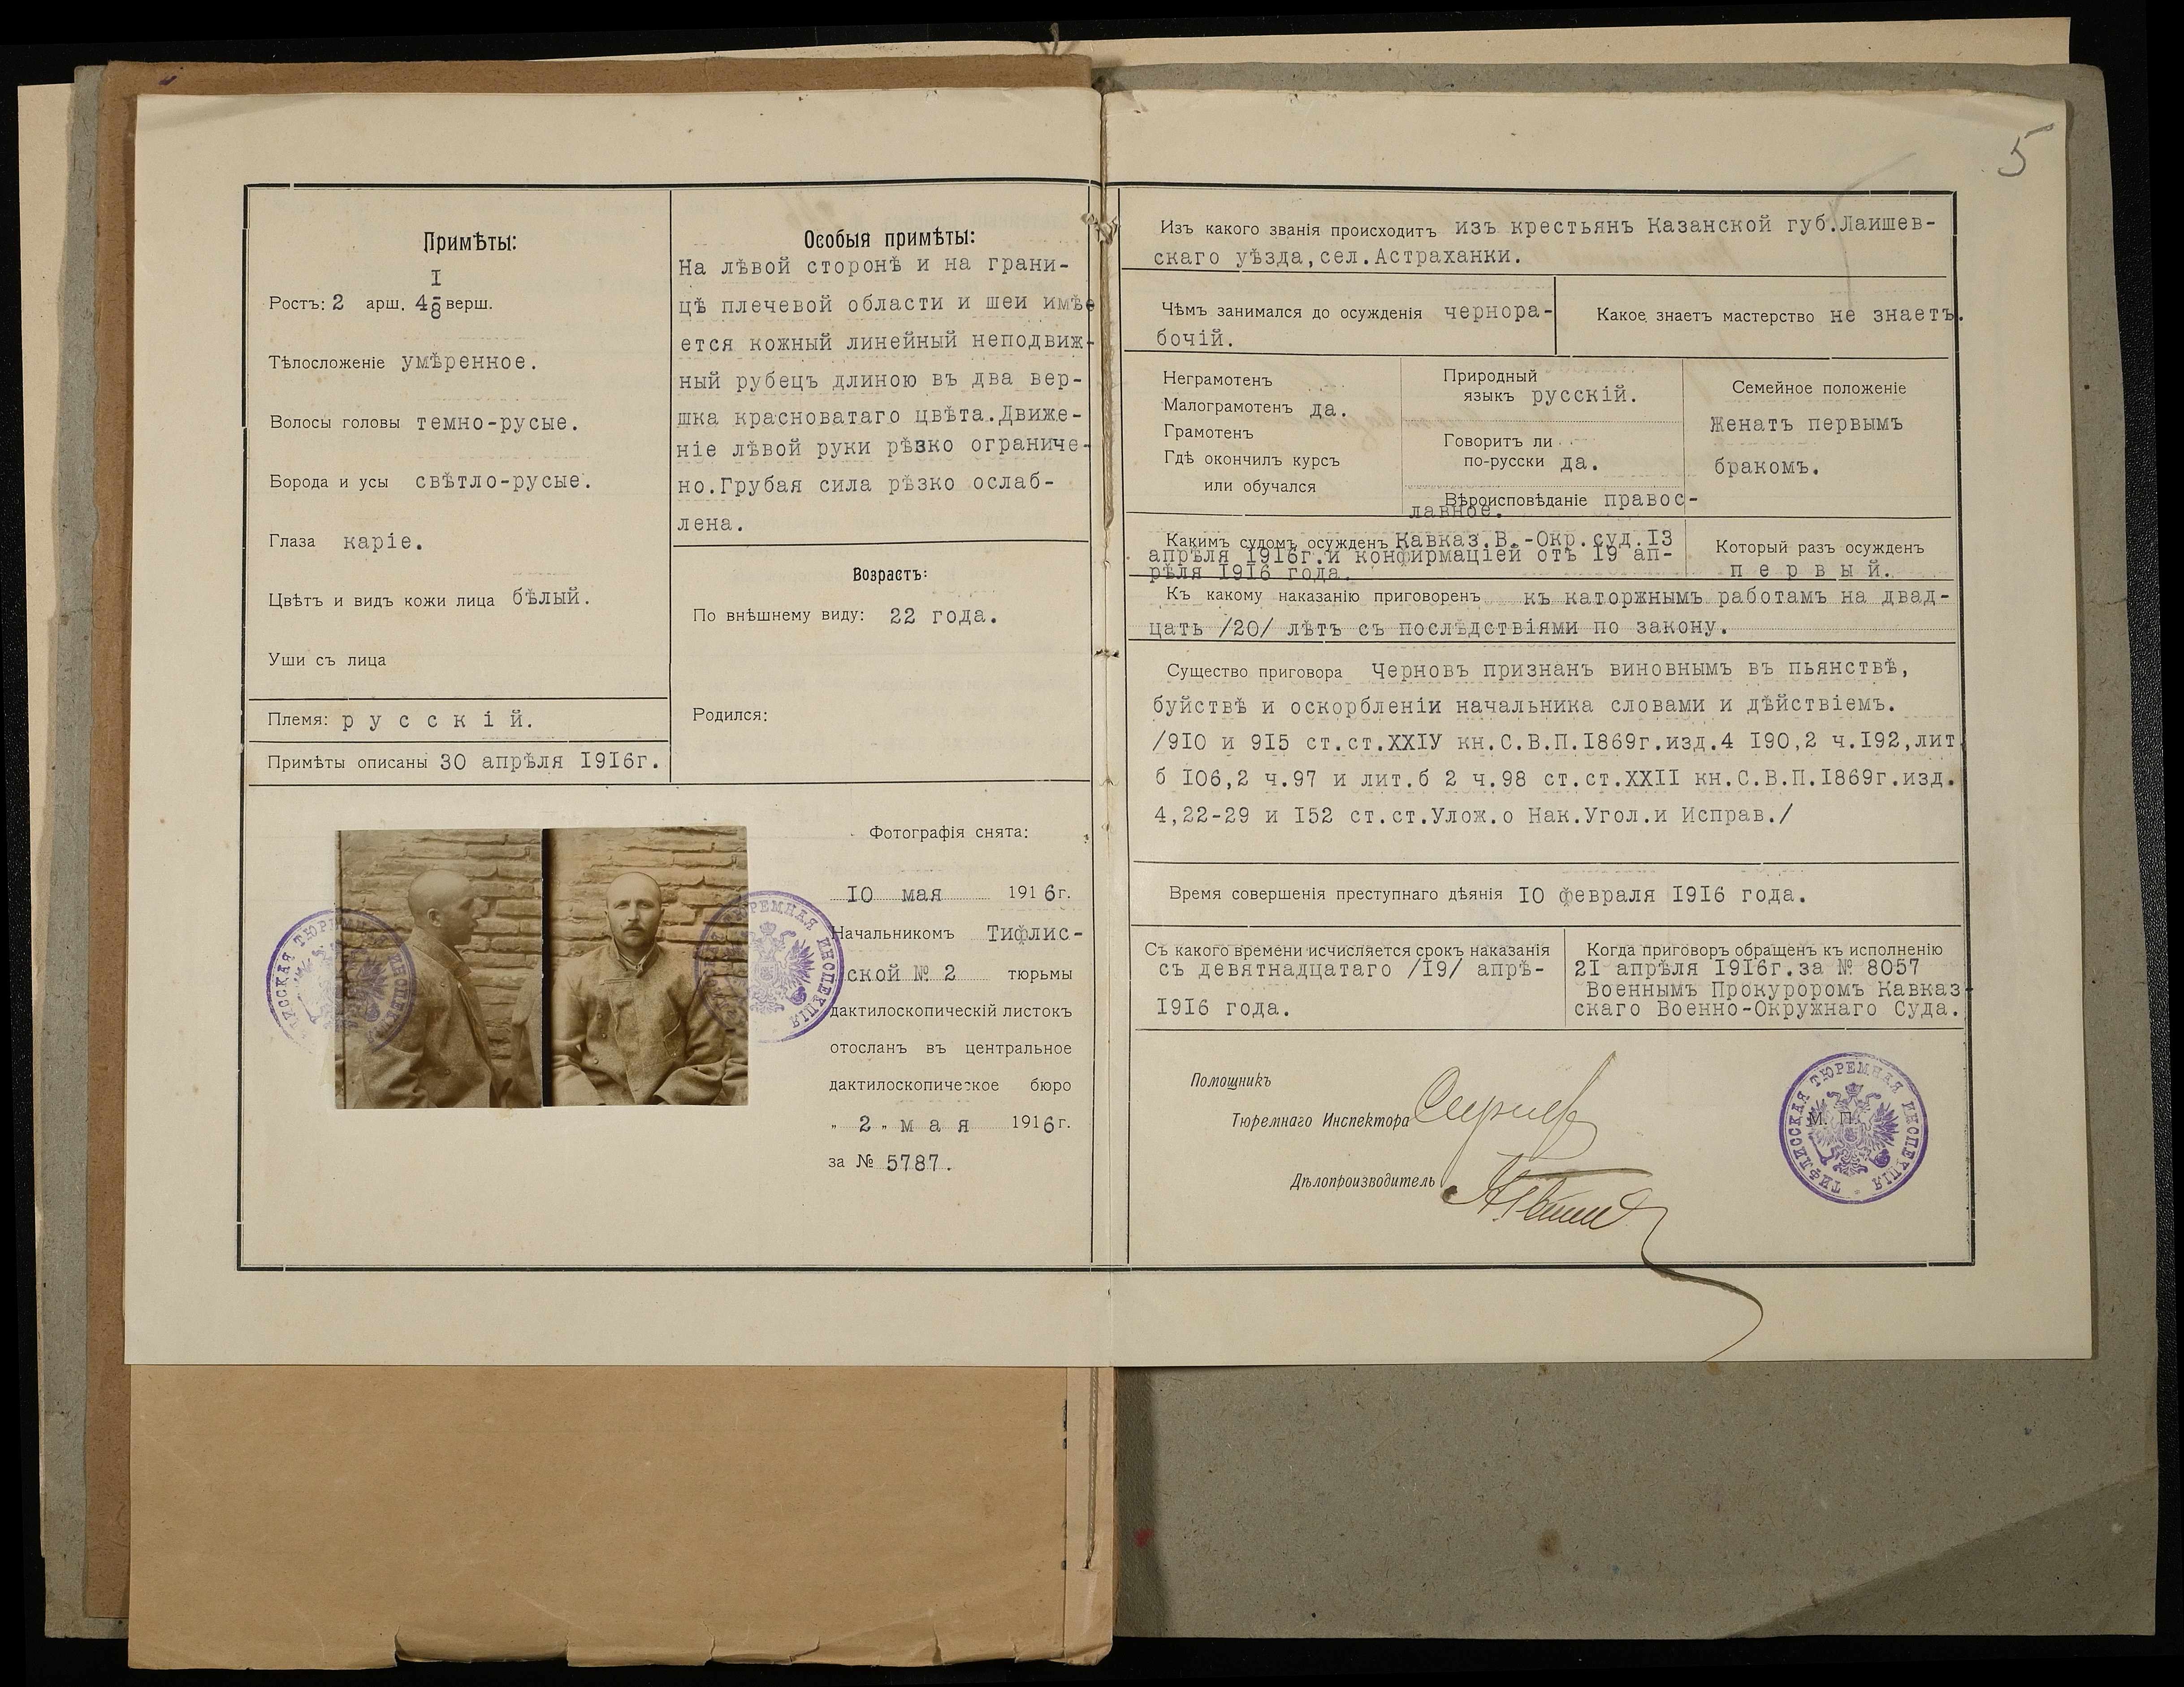 5
Примѣты:
Ростъ: 2 арш. 4 I/8 верш.
Тѣлосложеніе умѣренное.
Волосы головы темно-русые.
Борода и усы свѣтло-русые.
Глаза каріе.
Цвѣтъ и видъ кожи лица бѣлый.
Уши съ лица
Племя: р у с с к і й.
Примѣты описаны 30 апрѣля I9I6г.
Особыя примѣты:
На лѣвой сторонѣ и на грани-
цѣ плечевой области и шеи имѣе
ется кожный линейный неподвиж-
ный рубецъ длиною въ два вер-
шка красноватаго цвѣта.Движе-
ніе лѣвой руки рѣзко ограниче-
но.Грубая сила рѣзко ослаб-
лена.
Возрастъ:
По внѣшнему виду: 22 года.
Родился:
Фотографія снята:
IO мая 1916г.
Начальникомъ Тифлис-
ской № 2 тюрьмы
дактилоскопическій листокъ
отосланъ въ центральное
дактилоскопическое бюро
„ 2 „ м а я 1916г.
за № 5787.
ТИФЛИССКАЯ ТЮРЕМНАЯ ИНСПЕКЦІЯ
ТИФЛИССКАЯ ТЮРЕМНАЯ ИНСПЕКЦІЯ
Изъ какого званія происходитъ изъ крестьянъ Казанской губ.Лаишев-
скаго уѣзда,сел.Астраханки.
Чѣмъ занимался до осужденія чернора-
бочій.
Какое знаетъ мастерство не знаетъ.
Неграмотенъ
Малограмотенъ да.
Грамотенъ
Гдѣ окончилъ курсъ
или обучался
Природный
языкъ русскій.
Говоритъ ли
по-русски да.
Вѣроисповѣданіе правос-
лавное.
Семейное положеніе
Женатъ первымъ
бракомъ.
Какимъ судомъ осужденъ Кавказ.В.-Окр.суд.I3
апрѣля I9I6г.и конфирмаціей отъ I9 ап-
рѣля I9I6 года.
Который разъ осужденъ
п е р в ы й.
Къ какому наказанію приговоренъ къ каторжнымъ работамъ на двад-
цать /20/ лѣтъ съ послѣдствіями по закону.
Существо приговора Черновъ признанъ виновнымъ въ пьянствѣ,
буйствѣ и оскорбленіи начальника словами и дѣйствіемъ.
/9IO и 9I5 ст.ст.XXIУ кн.С.В.П.I869г.изд.4 I90,2 ч.I92,лит.
б IO6,2 ч.97 и лит.б 2 ч.98 ст.ст.XXII кн.С.В.П.I869г.изд.
4,22-29 и I52 ст.ст.Улож.о Нак.Угол.и Исправ./
Время совершенія преступнаго дѣянія IO февраля I9I6 года.
Съ какого времени исчисляется срокъ наказанія
съ девятнадцатаго /I9/ апрѣ-
I9I6 года.
Когда приговоръ обращенъ къ исполненію
2I апрѣля I9I6г.за № 8057
Военнымъ Прокуроромъ Кавказ-
скаго Военно-Окружнаго Суда.
Помощникъ
Тюремнаго Инспектора
Дѣлопроизводитель
М. П.
ТИФЛИССКАЯ ТЮРЕМНАЯ ИНСПЕКЦІЯ